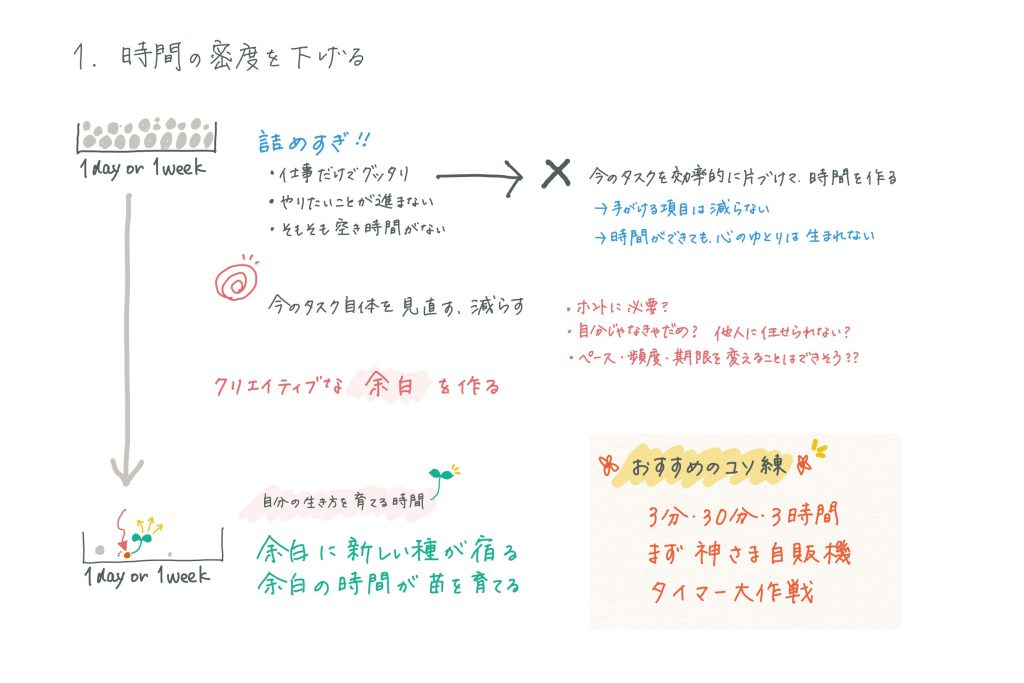 1. 時間の密度を下げる
1day or 1week
詰めすぎ!!
・仕事だけでグッタリ
・やりたいことが進まない
・そもそも空き時間がない
→ × 今のタスクを効率的に片づけて、時間を作る
→手がける項目は減らない
→時間ができても、心のゆとりは生まれない
今のタスク自体を見直す、減らす
・ホントに必要?
・自分じゃなきゃだめ? 他人に任せられない?
・ペース・頻度・期限を変えることはできそう??
クリエイティブな余白を作る
自分の生き方を育てる時間
余白に新しい種が宿る
余白の時間が苗を育てる
1day or 1week
おすすめのコソ練
3分・30分・3時間
まず神さま自販機
タイマー大作戦